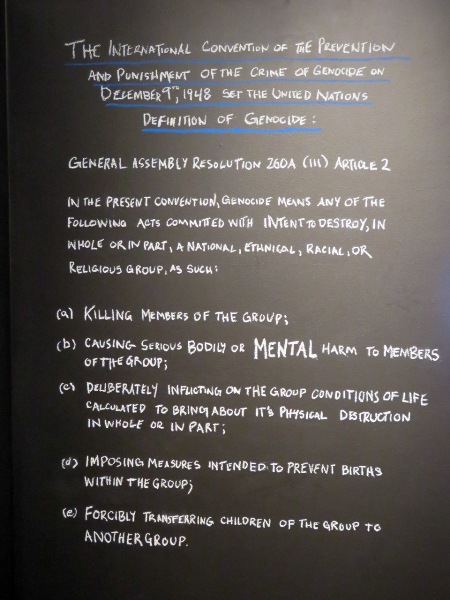 THE INTERNATIONAL CONVENTION OF THE PREVENTION
AND PUNISHMENT OF THE CRIME OF GENOCIDE ON
DECEMBER 9TH, 1948 SET THE UNITED NATIONS
DEFINITION OF GENOCIDE:
GENERAL ASSEMBLY RESOLUTION 260A (III) ARTICLE 2
IN THE PRESENT CONVENTION, GENOCIDE MEANS ANY OF THE
FOLLOWING ACTS COMMITTED WITH INTENT TO DESTROY, IN
WHOLE OR IN PART, A NATIONAL, ETHNICAL, RACIAL, OR
RELIGIOUS GROUP, AS SUCH:
(a) KILLING MEMBERS OF THE GROUP;
(b) CAUSING SERIOUS BODILY OR MENTAL HARM TO MEMBERS
OF THE GROUP;
(c) DELIBERATELY INFLICTING ON THE GROUP CONDITIONS OF LIFE
CALCULATED TO BRING ABOUT IT'S PHYSICAL DESTRUCTION
IN WHOLE OR IN PART;
(d) IMPOSING MEASURES INTENDED TO PREVENT BIRTHS
WITHIN THE GROUP;
(e) FORCIBLY TRANSFERRING CHILDREN OF THE GROUP TO
ANOTHER GROUP.